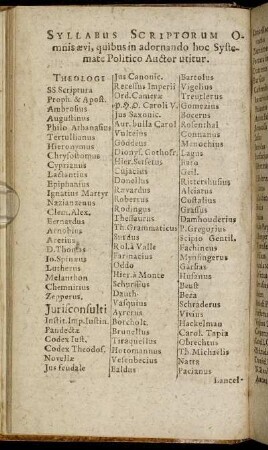 SYLLABUS SCRIPTORUM O-
mnis ævi, quibus in adornando hoc Syste-
mate Politico Auctor utitur.
THEOLOGI
SS. Scriptura
Proph. & Apost.
Ambrosius
Augustinus
Philo Athanasius
Tertullianus
Hieronymus
Chrysostomus
Cyprianus
Lactantius
Epiphanius
Ignatius Martyr
Nazianzenus
Clem. Alex.
Bernardus
Arnobius
Aretius
D. Thomas
In. Spinæus
Lutherus
Melanthon
Chemnitius
Zepperus,
Jurisconsulti
Instit. Imp. Justin.
Pandectæ
Codex Just.
Codex Theodos.
Novellæ
Jus feudale
Jus Canonic.
Recessus Imperii
Ord. Cameræ
P. H. O. Caroli V.
Jus Saxonic.
Aur. bulla Carol
Vulteius
Göddeus
Dionys. Gothofr.
Hier. Setserus
Cujacius
Donellus
Ravardus
Robertus
Rodingus
Thesaurus
Th. Grammaticus
Surdus
Rol. à Valle
Farinacius
Oddo
Hier. à Monte
Schurffius
Dauth
Vasquius
Ayrerus
Borcholt
Brunellus
Tiraquellus
Hotomannus
Vesembecius
Baldus
Bartolus
Vigelius
Treutlerus
Gomezius
Bocerus
Rosenthal
Connanus
Menochius
Lagus
Baro
Geil.
Rittershusius
Alciatus
Costalius
Grassus
Damhouderius
P. Gregorius
Scipio Gentil.
Fachineus
Mynsingerus
Garsias
Husanus
Beust
Beza
Schraderus
Vivius
Hackelman
Carol. Tapia
Obrechtus
Th. Michaelis
Natta
Pacianus
Lancel-